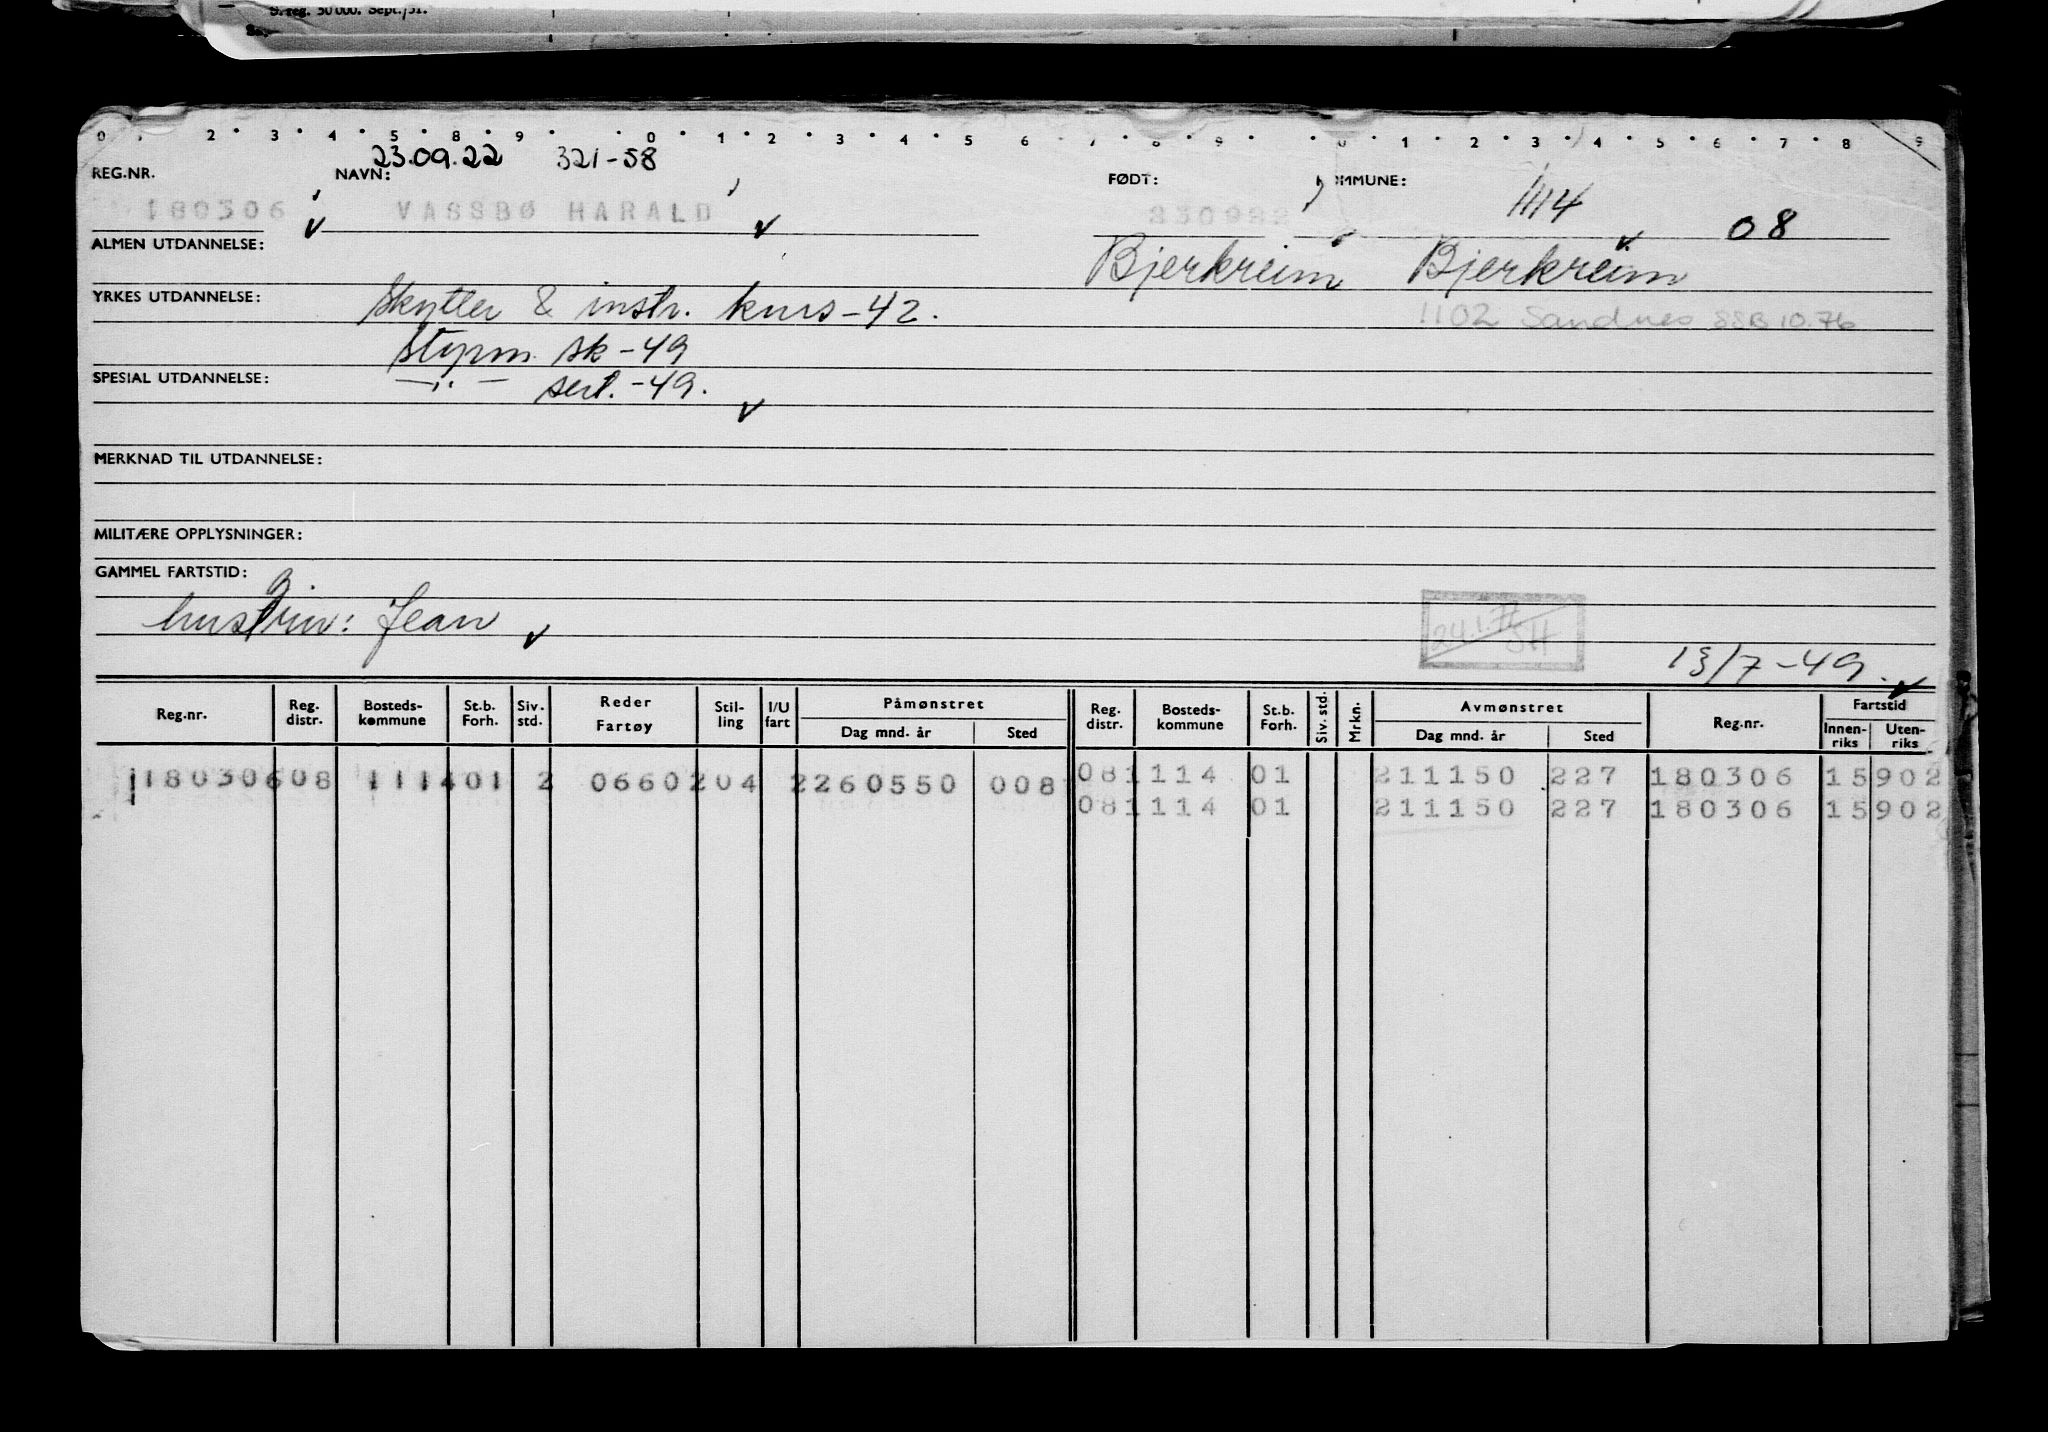 S. reg. 50 000. Sept./51.
0 2 3 4 5 8 9 0 1 2 3 4 5 6 7 8 9 0 1 2 3 4 5 6 7 8 9
23.09.22 321-58
REG.NR. NAVN: FØDT: KOMMUNE:
180306 VASSBØ HARALD 230922 1114 08
ALMEN UTDANNELSE: Bjerkreim Bjerkreim
YRKES UTDANNELSE: Skytter & instr. kurs -42. 1102 Sandnes SSB 10.76
Styrm. sk -49
SPESIAL UTDANNELSE: —"— sert. -49.
MERKNAD TIL UTDANNELSE:
MILITÆRE OPPLYSNINGER:
GAMMEL FARTSTID:
hustru: Jean
13/7-49.
Reg.nr. Reg. distr. Bosteds-kommune St.b. Forh. Siv. std. Reder Fartøy Stil-ling I/U fart Påmønstret Dag mnd. år Sted Reg. distr. Bosteds-kommune St.b. Forh. Siv. std. Mrkn. Avmønstret Dag mnd. år Sted Reg.nr. Fartstid Innen-riks Uten-riks
180306 08 1114 01 2 06602 04 2 260550 008 08 1114 01 211150 227 180306 15902
08 1114 01 211150 227 180306 15902